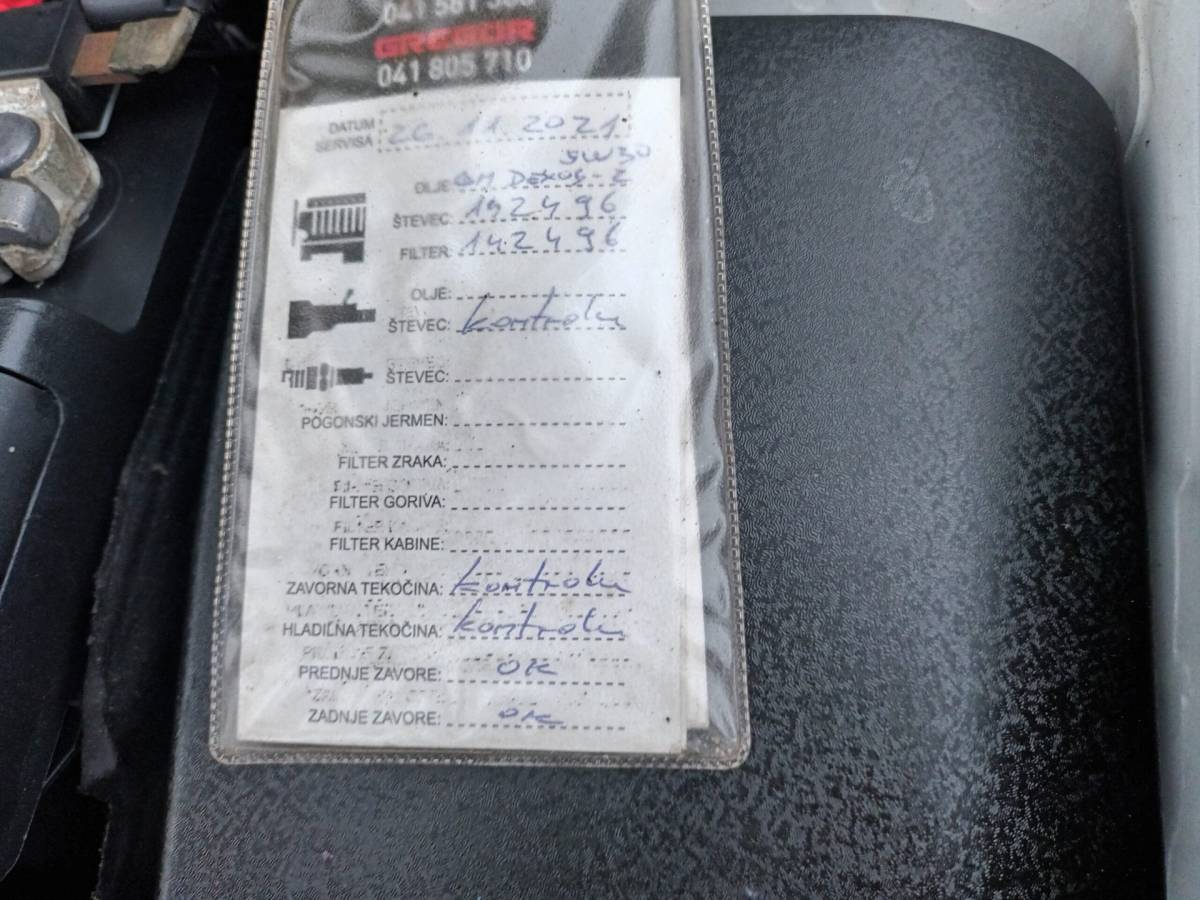 041 581
GREGOR
041 805 710
DATUM SERVISA 26 11 2021
5W30
OLJE GM DEXOS-2
ŠTEVEC: 142496
FILTER: 142496
OLJE:
ŠTEVEC: kontrola
ŠTEVEC:
POGONSKI JERMEN:
FILTER ZRAKA:
FILTER GORIVA:
FILTER KABINE:
ZAVORNA TEKOČINA: kontrola
HLADILNA TEKOČINA: kontrola
PREDNJE ZAVORE: OK
ZADNJE ZAVORE: OK